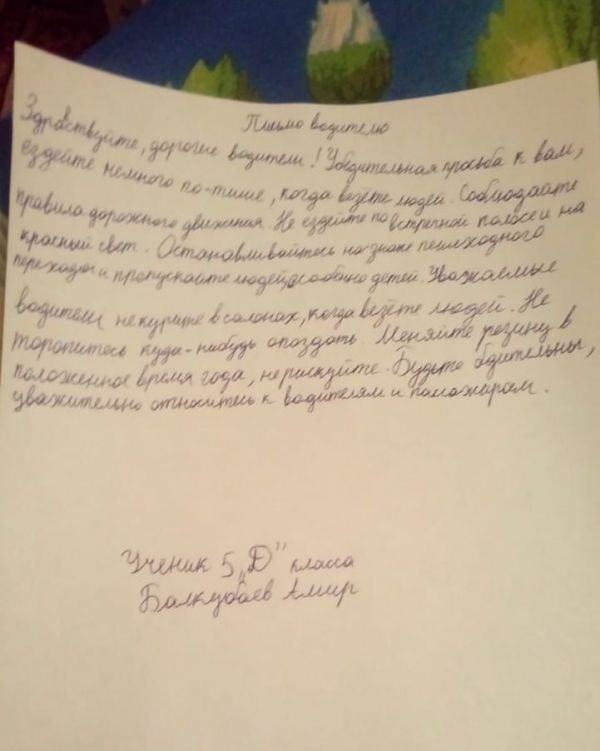 Письмо водителю
Здравствуйте, дорогие водители! Убедительная просьба к вам,
ездейте немного по-тише, когда везёте людей. Соблюдайте
правила дорожного движения. Не ездейте по встречной полосе и на
красный свет. Останавливайтесь на знаке пешиходного
переходы и пропускайте людей, особенно детей. Уважаемые
водители не курите в салонах, когда везёте людей. Не
торопитесь куда-нибудь опоздать. Меняйте резину в
положенное время года, не рискуйте. Будьте бдительны,
уважительно относитесь к водителям и пассажирам.
Ученик 5 „D" класса
Балкубаев Амир